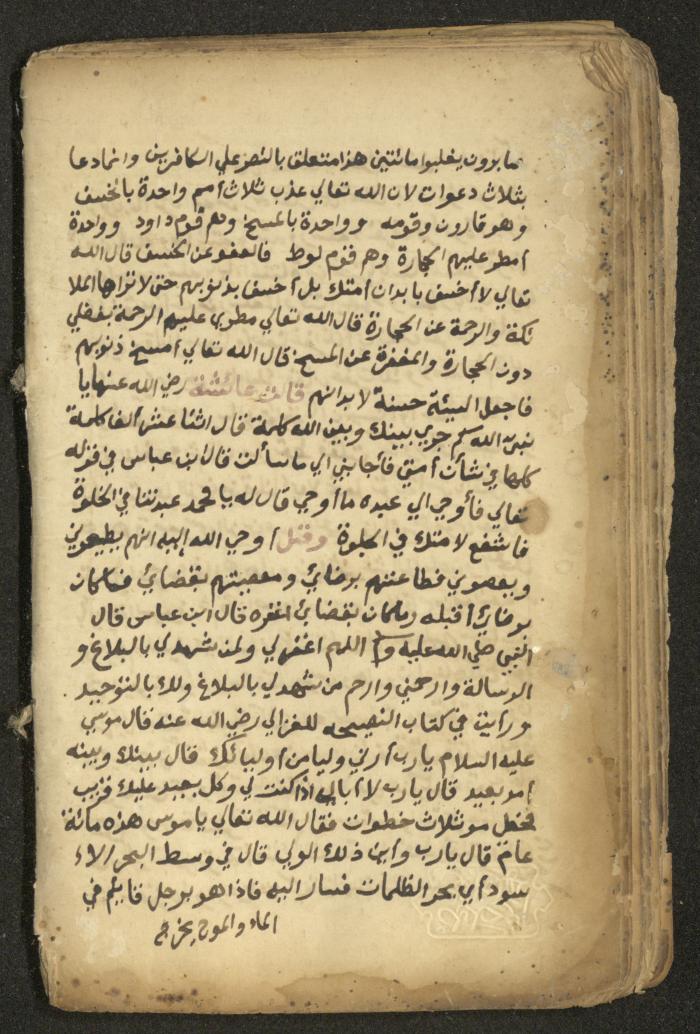 صابرون يغلبوا مائتين هذا متعلق بالنصر علي الكافرين وانما دعا
بثلاث دعوات لان الله تعالي عذب ثلاث أمم واحدة بالخسف
وهو قارون وقومه وواحدة بالمسخ وهم قوم داود وواحدة
أمطر عليهم الحجارة وهم قوم لوط فالعفو عن الخسف قال الله
تعالي لا أخسف بابدان أمتك بل أخسف بذنوبهم حتى لا تراها الملا
ئكة والرحمة عن الحجارة قال الله تعالي مطري عليهم الرحمة بفضلي
دون الحجارة والمغفرة عن المسخ قال الله تعالي أمسخ ذنوبهم
فاجعل السيئة حسنة لابدانهم قالت عائشة رضي الله عنها يا
نبي الله كم جري بينك وبين الله كلمة قال اثنا عشر ألف كلمة
كلها في شأن أمتي فأجابني الي ما سألت قال ابن عباس في قوله
تعالي فأوحي الي عبده ما أوحي قال له يا محمد عبدتنا في الخلوة
فاشفع لامتك في الجلوة وقيل أوحي الله إليه انهم يطيعوني
ويعصوني فطاعتهم برضائي ومعصيتهم بقضائي فما كان
برضائي أقبله وما كان بقضائي اغفره قال ابن عباس قال
النبي صلي الله عليه وسلم اللهم اغفر لي ولمن شهد لي بالبلاغ و
الرسالة وارحمني وارحم من شهد لي بالبلاغ ولك بالتوحيد
ورأيت في كتاب النصيحه للغزالي رضي الله عنه قال موسي
عليه السلام يارب أرني وليا من أوليائك قال بينك وبينه
أمد بعيد قال يارب لا أبالي اذا كنت لي وكل بعيد عليك قريب
فخطي موسي ثلاث خطوات فقال الله تعالي يا موسي هذه مائة
عام قال يارب وأين ذلك الولي قال في وسط البحر الا
سود أي بحر الظلمات فسار اليه فاذا هو برجل قايم في
الماء والموج يخرج